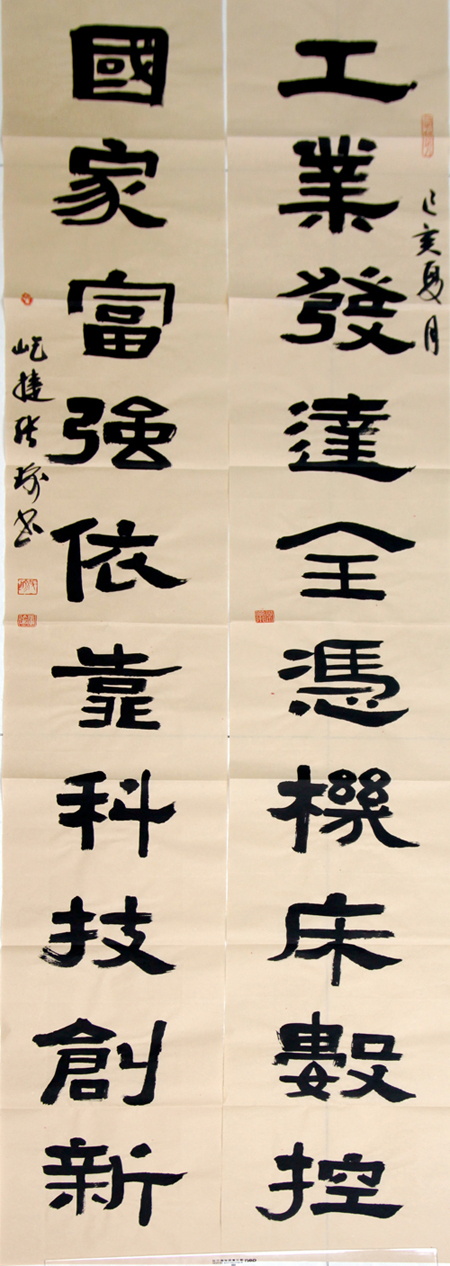 工業發達全憑機床數控
己亥夏月
國家富強依靠科技創新
屹捷張瑜书